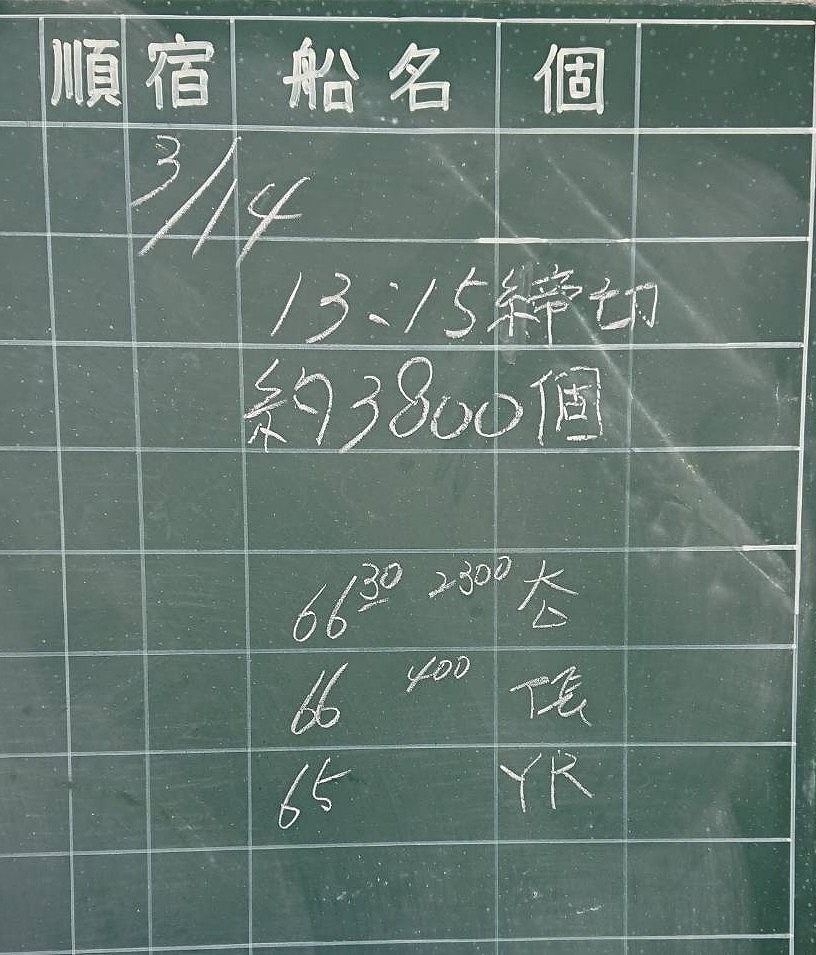 順 宿 船名 個
3/14
13:15締切
約3800個
66 30 2300
66 400
65 YR